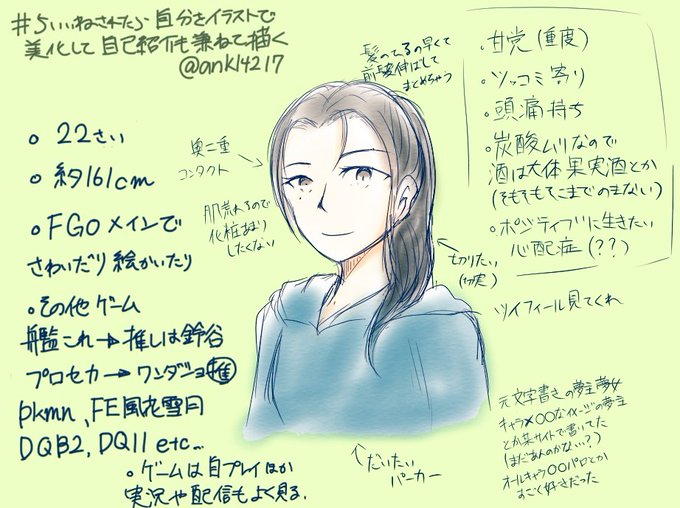 #5いいねされたら自分をイラストで
美化して自己紹介も兼ねて描く
@ank14217
髪のびるの早くて
前髪伸ばして
まとめちゃう
・甘党(重度)
・ツッコミ寄り
・頭痛持ち
・炭酸ムリなので
酒は大体果実酒とか
(そもそもそこまでのまない)
・ポジティブに生きたい
心配症(??)
○22さい
○約161cm
○FGOメインで
さわいだり絵かいたり
○その他ゲーム
艦これ→推しは鈴谷
プロセカ→ワンダショ推
pkmn、FE風花雪月
DQB2, DQ11 etc...
○ゲームは自プレイほか
実況や配信もよく見る.
奥二重
コンタクト
肌荒れるので
化粧あまり
したくない
切りたい
(切実)
ツイフィール見てくれ
だいたい
パーカー
元文字書きの夢主夢女
キャラ×〇〇なイメージの夢主
とか某サイトで書いてた
(まだあんのかな…?)
オールキャラ〇〇パロとか
すごく好きだった